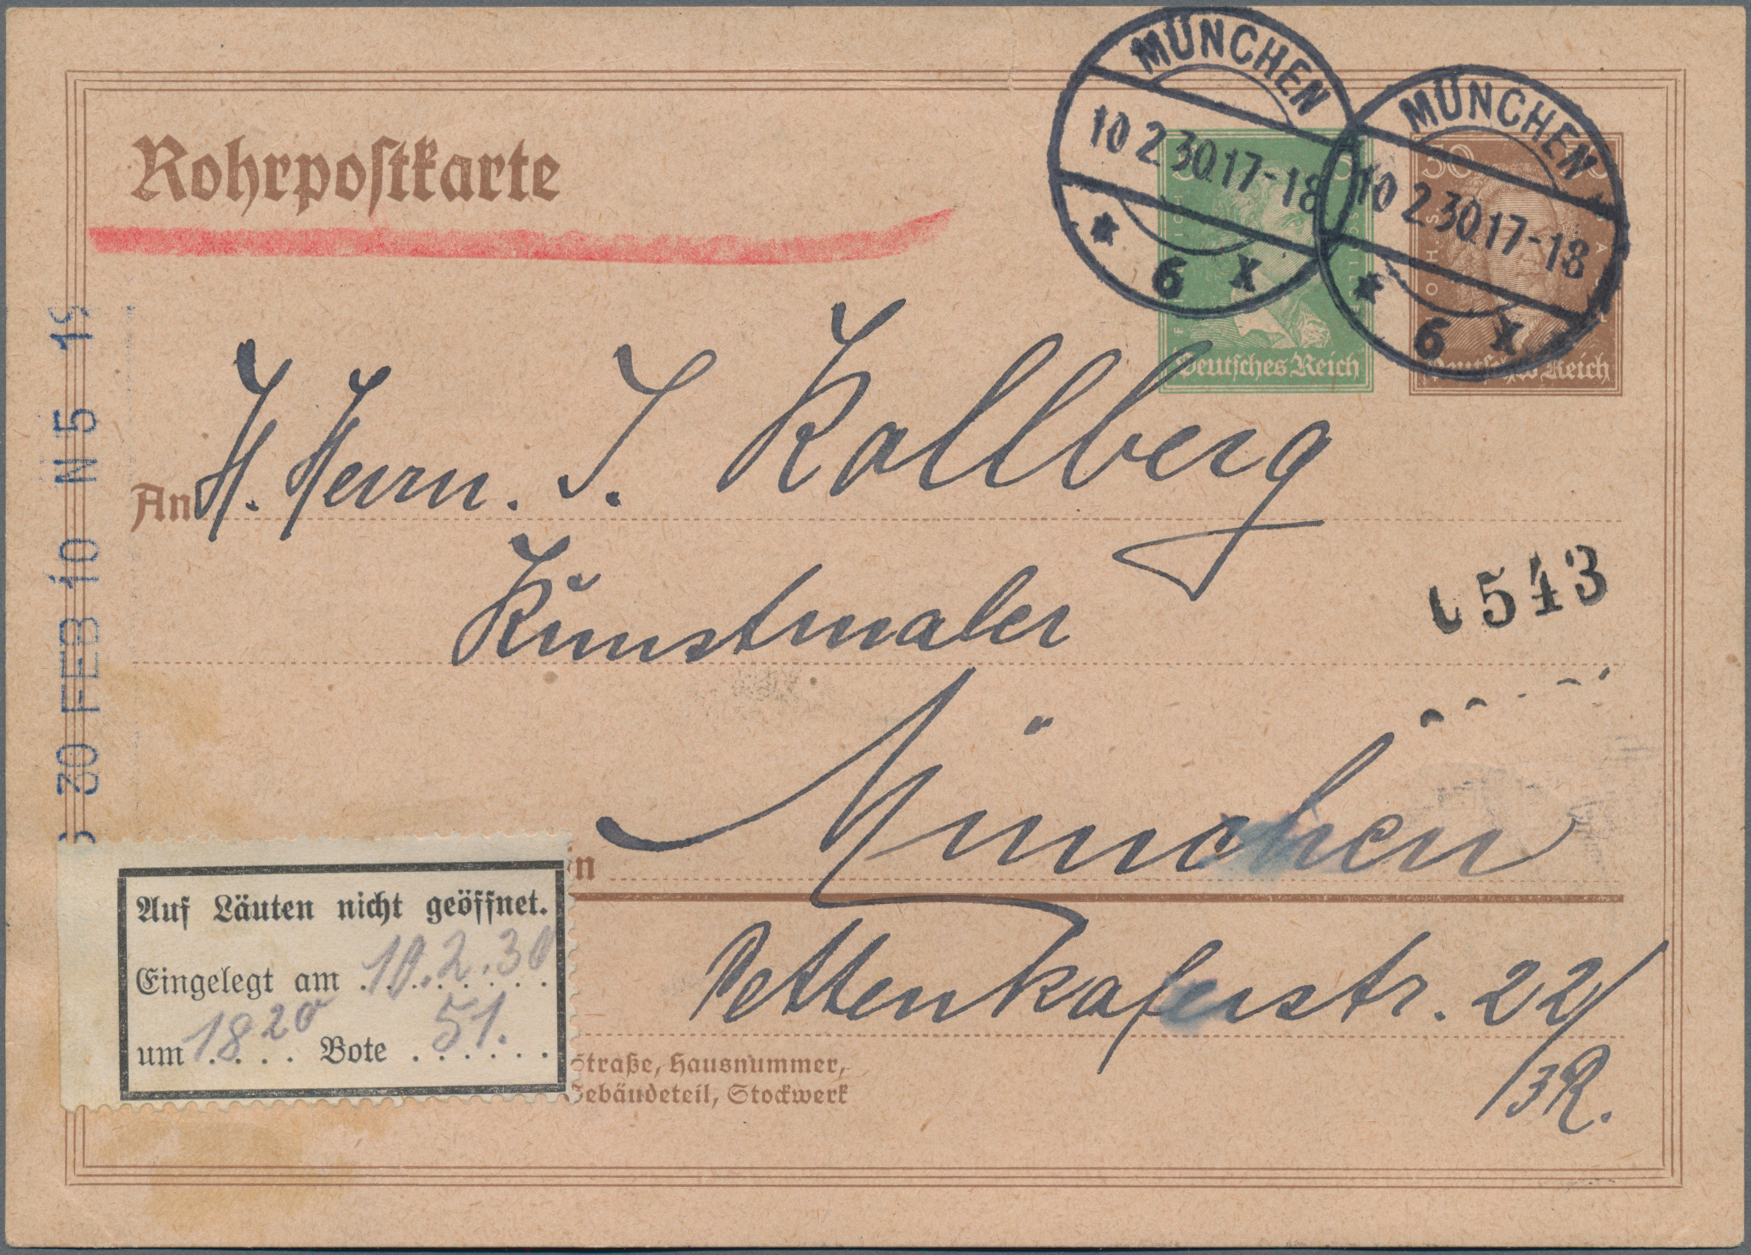 MÜNCHEN
10 2.30.17-18
* 6 X
MÜNCHEN
10 2.30.17-18
* 6 X
Rohrpostkarte
30
Deutsches Reich
Deutsches Reich
30 FEB 10 N 5 19
An H. Herrn. J. Kollberg
Kunstmaler
543
München
Pettenkoferstr. 22/
/3R.
Auf Läuten nicht geöffnet.
Eingelegt am 10.2.30
um 18 20 Bote 51.
Straße, Hausnummer,
Gebäudeteil, Stockwerk